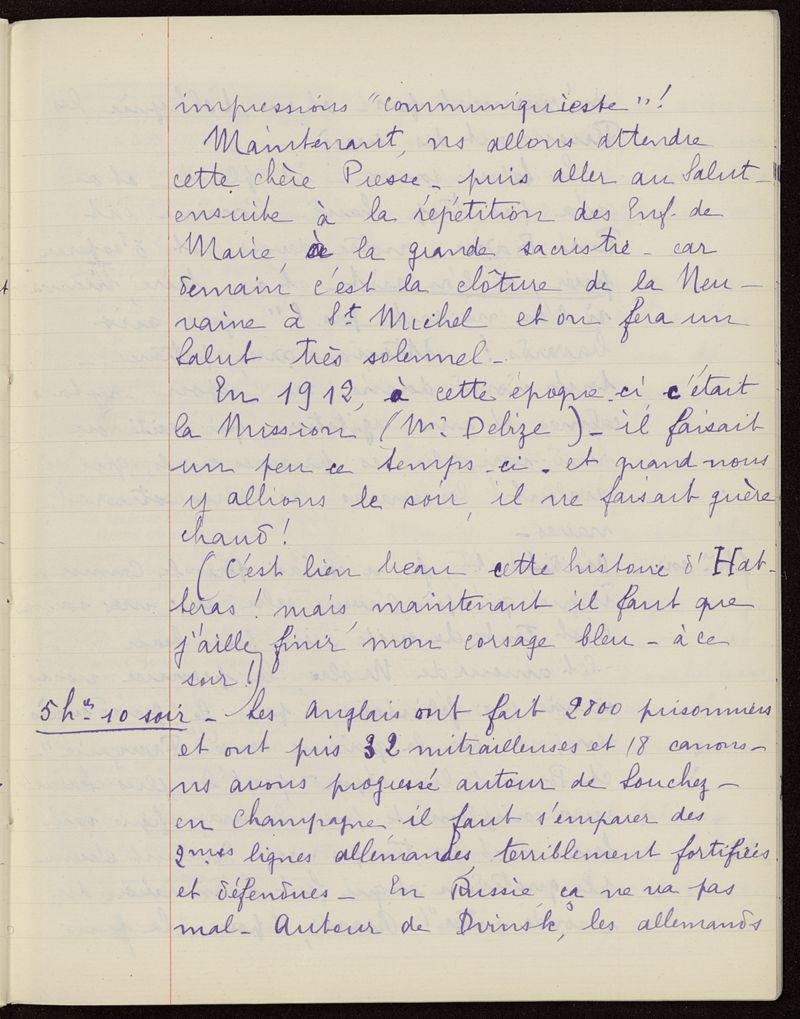 impressions "communiquieste"!
Maintenant, ns allons attendre
cette chère Presse - puis aller au Salut -
ensuite à la répétition des Enf. de
Marie à la grande sacristie - car
demain c'est la clôture de la Neu-
vaine à St Michel et on fera un
Salut très solennel -
En 1912, à cette époque-ci c'était
la Mission (Mr. Delize) - il faisait
un peu ce temps-ci - et quand nous
y allions le soir, il ne faisait guère
chaud!
(C'est bien beau cette histoire d'Hat-
teras! mais maintenant il faut que
j'aille finir mon corsage bleu - à ce
soir!)
5 hes 10 soir - Les Anglais ont fait 2800 prisonniers
et ont pris 32 mitrailleuses et 18 canons -
ns avons progressé autour de Souchez -
en Champagne il faut s'emparer des
2mes lignes allemandes, terriblement fortifiées
et défendues - En Russie, ça ne va pas
mal - Autour de Dvinsk, les allemands